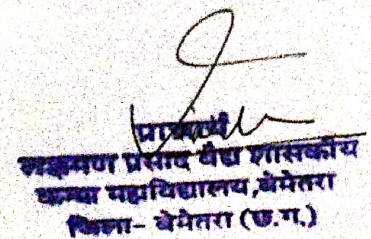 प्राचार्य
लक्ष्मण प्रसाद वैद्य शासकीय
कन्या महाविद्यालय, बेमेतरा
जिला- बेमेतरा (छ.ग.)